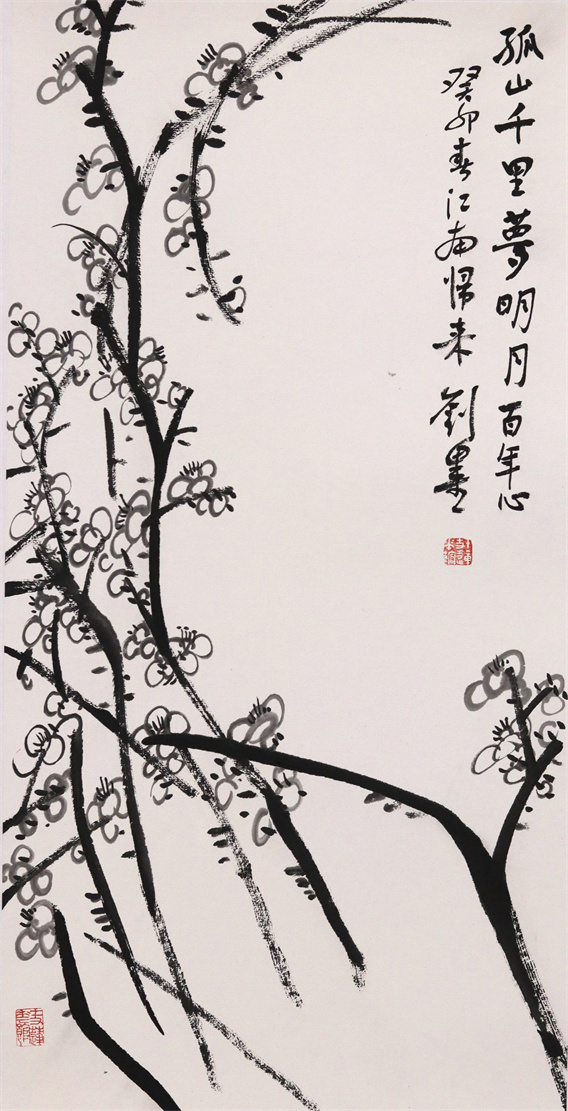 孤山千里夢明月百年心
癸卯春江南歸来劉墨